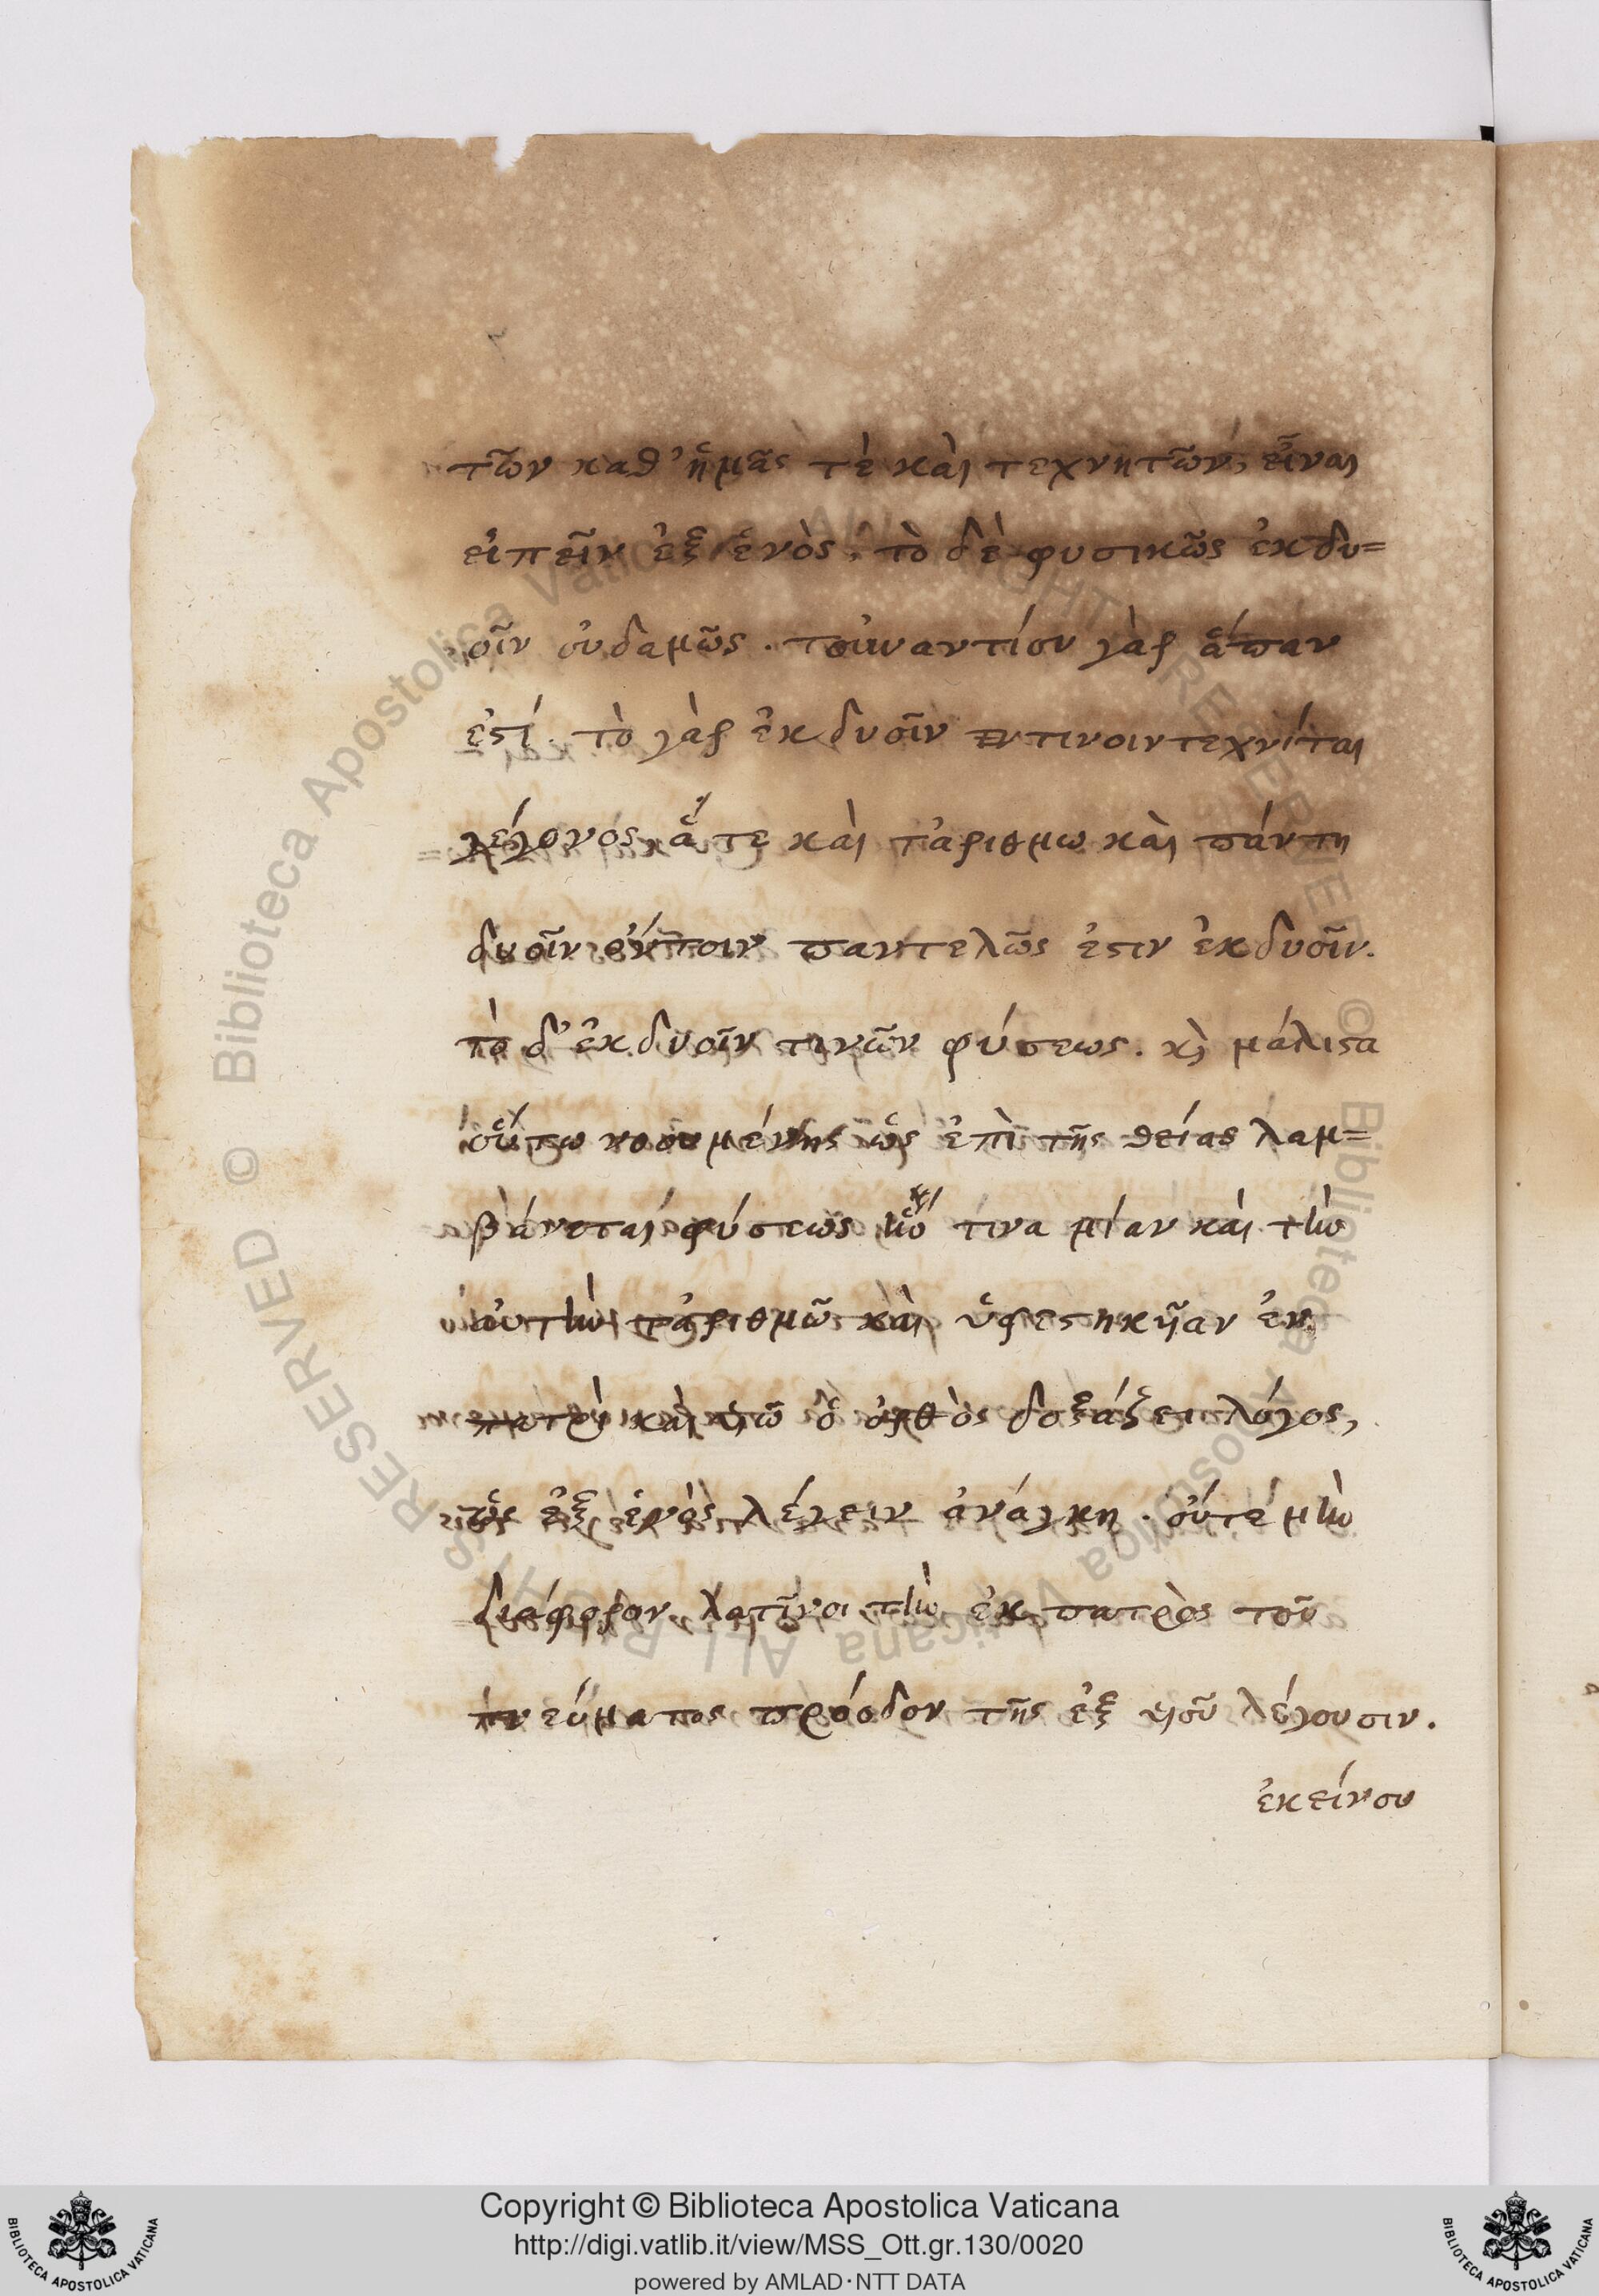 τῶν καθ' ἡμᾶς τὲ καὶ τεχνητῶν, εἶναι
εἰπεῖν ἐξ ἑνὸς, τὸ δὲ φυσικῶς ἐκ δυ=
οῖν οὐδαμῶς. τοὐναντίον γὰρ ἅπαν
ἐστί. τὸ γὰρ ἐκ δυοῖν τινοιν τεχνίται
γέγονός ἅτε καὶ τἀριθμω καὶ πάντη
δυοῖν ὄντοιν παντελῶς ἐστιν ἐκ δυοῖν.
τὸ δ' ἐκ δυοῖν τινῶν φύσεως. κὶ μάλιστα
οὕτω νοουμένης ὡς ἐπὶ τῆς θείας λαμ=
βάνεται φύσεως ἣν τινα μίαν καὶ τὴν
αὐτὴν τἀριθμῶ καὶ ὑφεστηκῆαν ἐν
πατρὶ καὶ υἱῶ ὁ ὀρθὸς δοξάζει λόγος,
ὡς ἐξ ἑνὸς λέγειν ἀνάγκη. οὔτέ μὴν
διάφορον λατῖνοι τὴν ἐκ πατρὸς τοῦ
πνεύματος πρόοδον τῆς ἐξ υἱοῦ λέγουσιν.
ἐκείνου
© Biblioteca Apostolica Vaticana ALL RIGHTS RESERVED
© Biblioteca Apostolica Vaticana ALL RIGHTS RESERVED
Copyright © Biblioteca Apostolica Vaticana
http://digi.vatlib.it/view/MSS_Ott.gr.130/0020
powered by AMLAD·NTT DATA
BIBLIOTECA APOSTOLICA VATICANA
BIBLIOTECA APOSTOLICA VATICANA